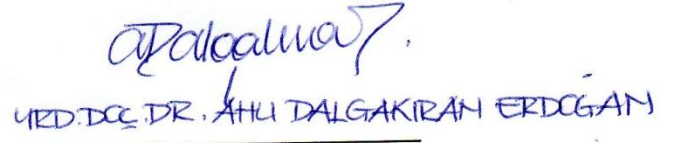 YRD.DOÇ.DR. AHU DALGAKIRAN ERDOĞAN